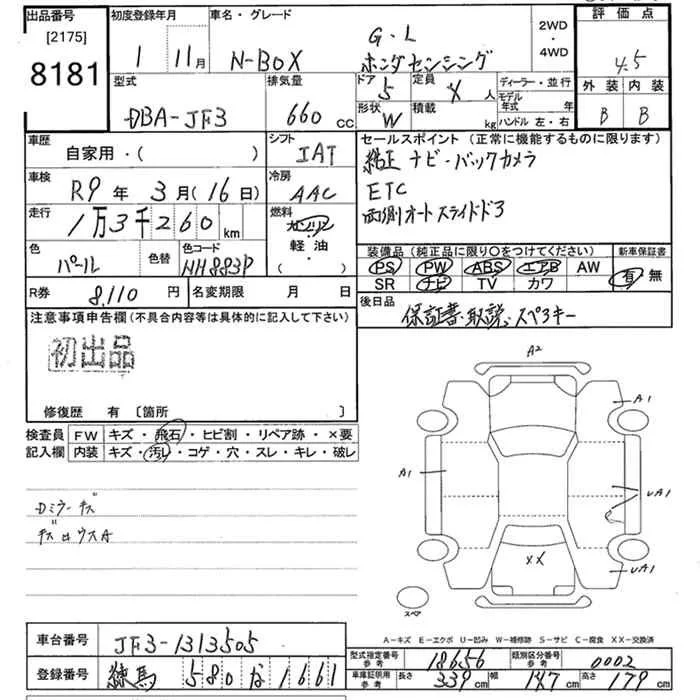 出品番号 初度登録年月 車名・グレード 2WD・4WD 評価点
[2175]
8181
1 11月 N-BOX G・L ホンダセンシング 4.5
型式 排気量 ドア 定員 ディーラー・並行 外装 内装
DBA-JF3 660 cc 5 4 人 モデル年式 年 B B
形状 積載 ハンドル 左・右
W kg
車歴 シフト セールスポイント (正常に機能するものに限ります)
自家用・( ) IAT 純正 ナビ・バックカメラ
車検 冷房 ETC
R9 年 3 月 (16 日) AAC 両側オートスライドドア
走行 燃料
1万3千260 km ガソリン 軽油・( )
色 色替 色コード 装備品 (純正品に限り○をつけてください) 新車保証書
パール NH883P PS PW ABS エアB AW 有 無
SR ナビ TV カワ
R券 8,110 円 名変期限 月 日 後日品
保証書・取説・スペアキー
注意事項申告欄 (不具合内容等は具体的に記入して下さい)
初出品
修復歴 有 [箇所 ]
検査員 FW キズ・飛石・ヒビ割・リペア跡・×要
記入欄 内装 キズ・汚レ・コゲ・穴・スレ・キレ・破レ
Dミラーキズ
A2
A1
A1
UA1
XX
UA1
スペア
A-キズ E-エクボ U-凹み W-補修跡 S-サビ C-腐食 XX-交換済
車台番号 JF3-1313505
登録番号 練馬 580 な 1661
型式指定番号 参考 18656 類別区分番号 参考 0002
車庫証明用 参考 長さ 339 cm 幅 147 cm 高さ 179 cm